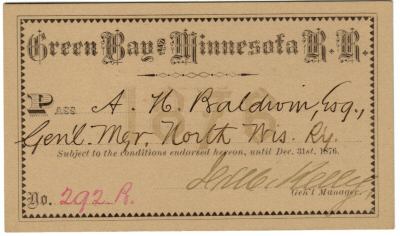 Green Bay and Minnesota R. R.
1876
Pass A. H. Baldwin, Esq.,
Genl. Mgr. North Wis. Ry.
Subject to the conditions endorsed hereon, until Dec. 31st. 1876.
No. 292. R.
Gen'l Manager.